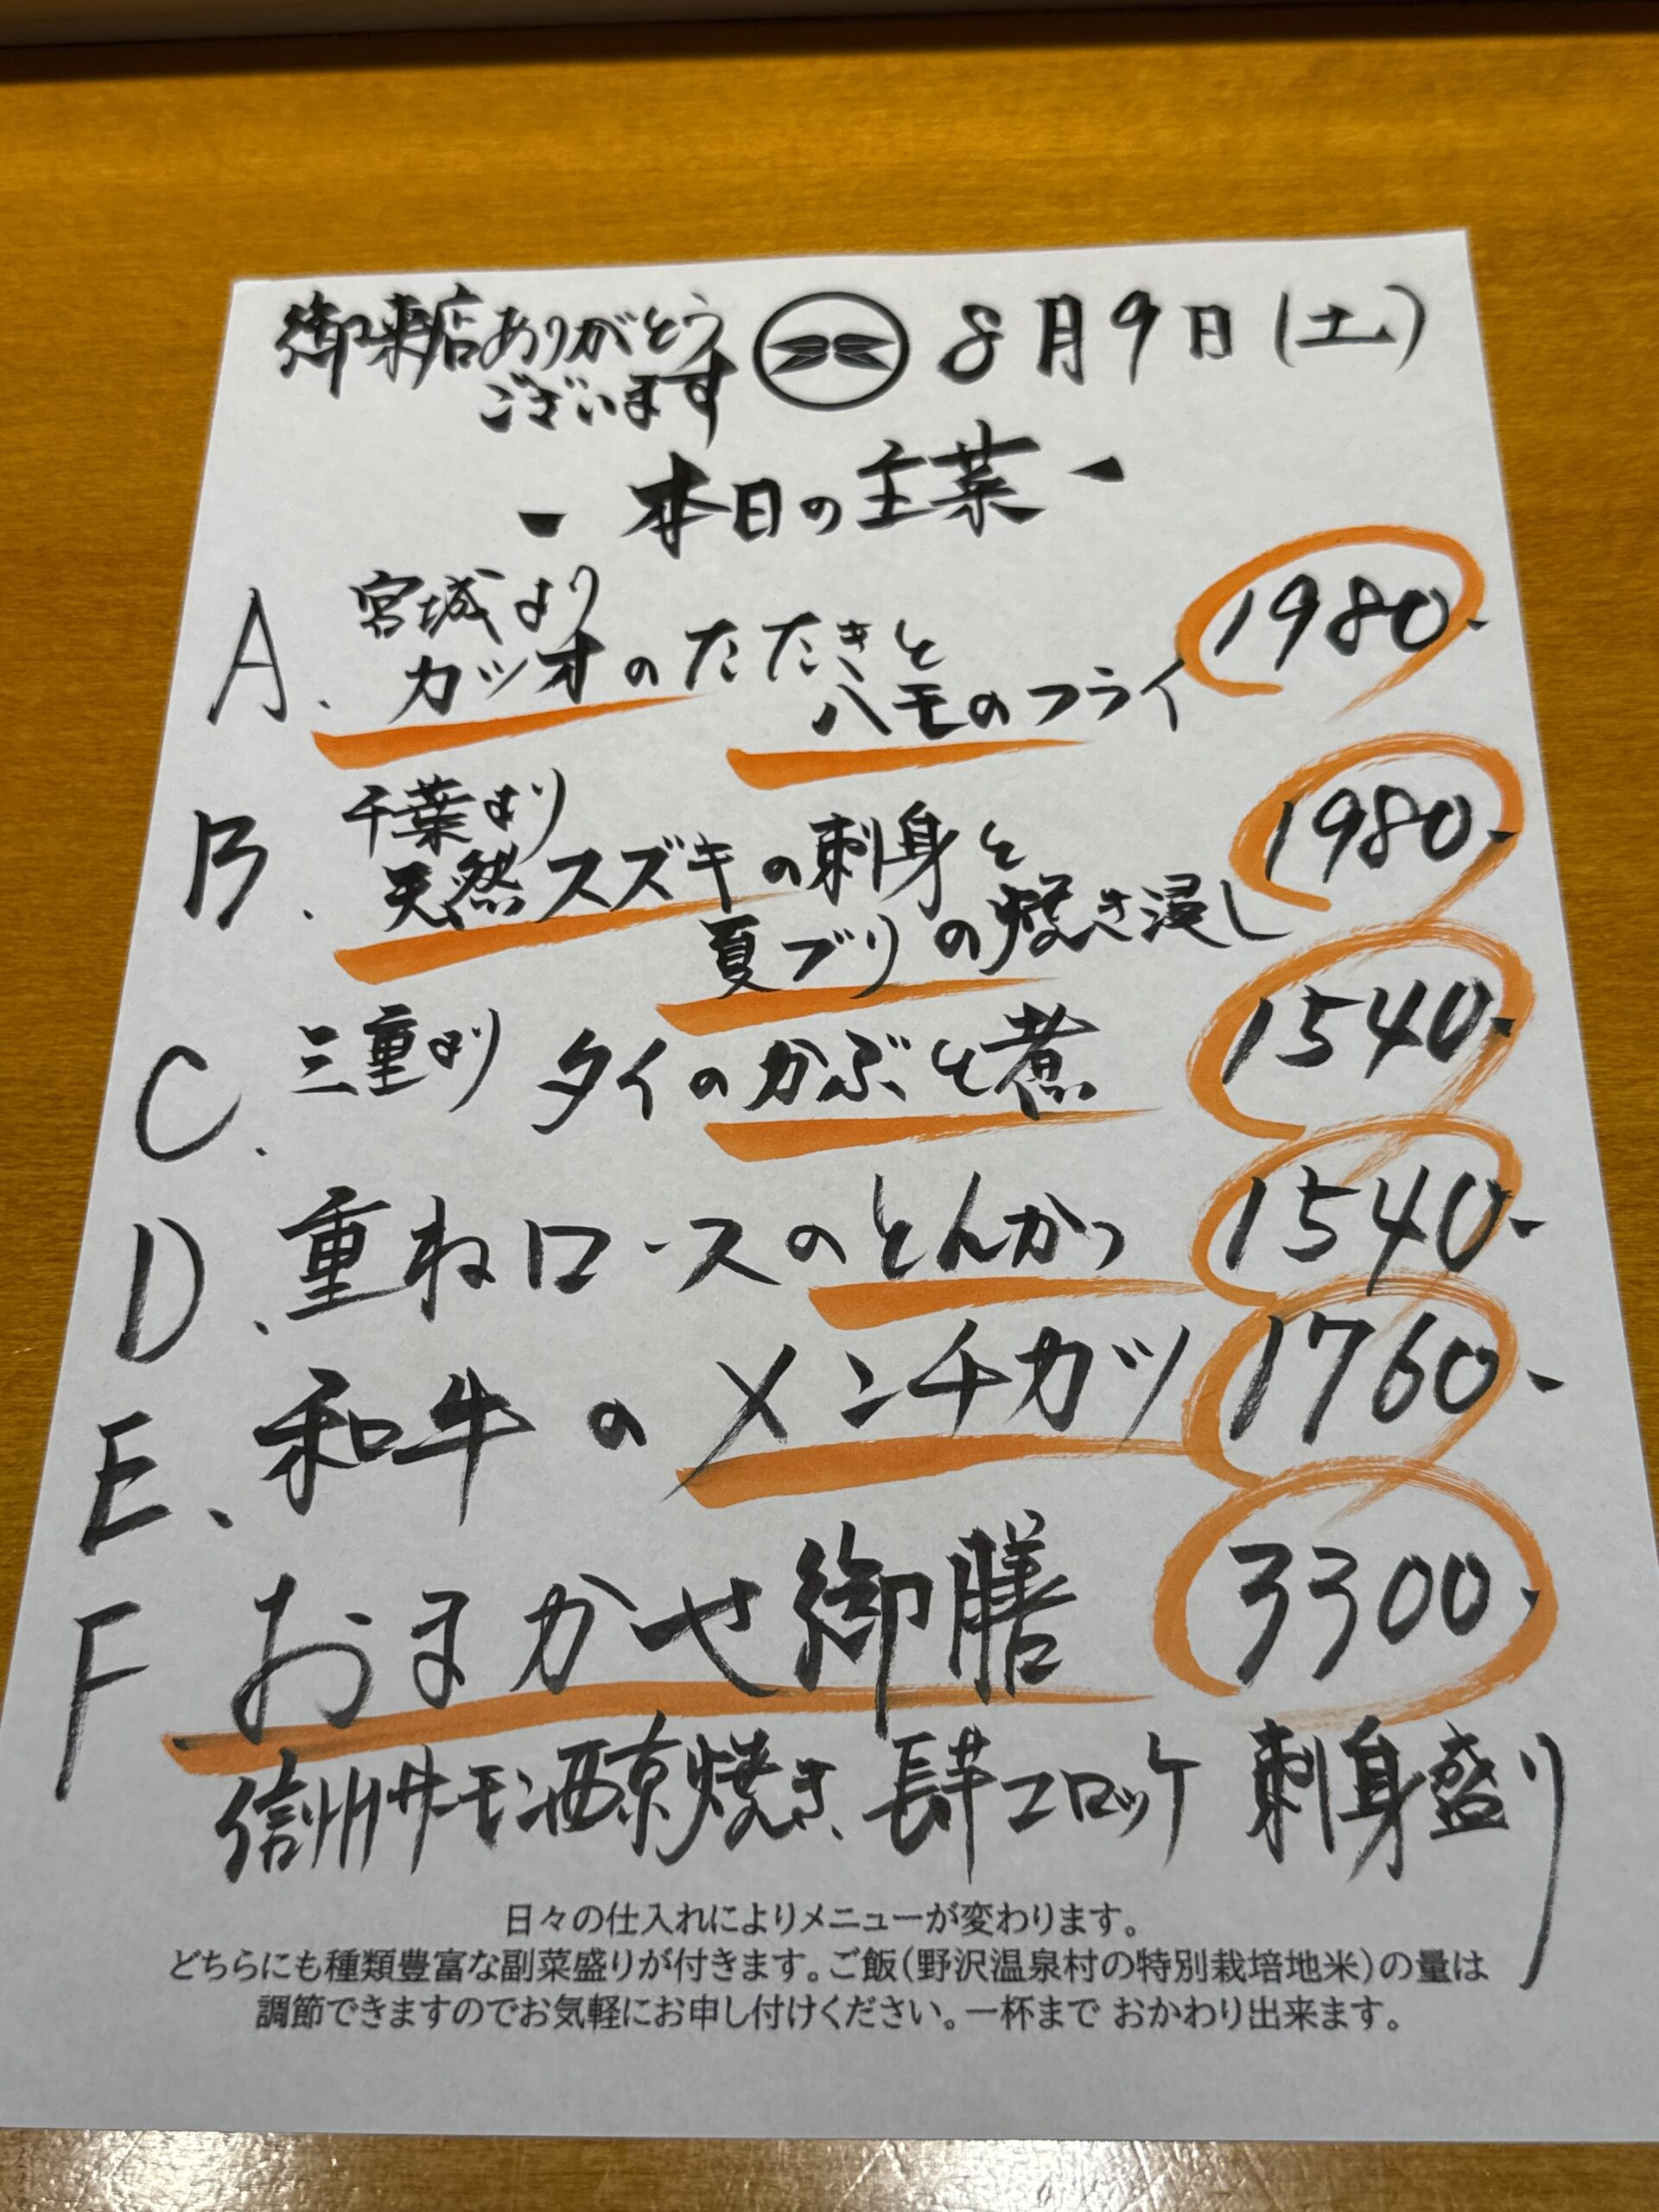 御来店ありがとう
ございます
8月9日(土)
- 本日の主菜 -
A. 宮城より
カツオのたたきと
ハモのフライ 1980-
B. 千葉より
天然スズキの刺身と
夏ブリの焼き浸し 1980-
C. 三重より タイのかぶと煮 1540-
D. 重ねロースのとんかつ 1540-
E. 和牛のメンチカツ 1760-
F おまかせ御膳 3300-
信州サーモン西京焼き、長芋コロッケ 刺身盛り
日々の仕入れによりメニューが変わります。
どちらにも種類豊富な副菜盛りが付きます。ご飯(野沢温泉村の特別栽培地米)の量は
調節できますのでお気軽にお申し付けください。一杯まで おかわり出来ます。